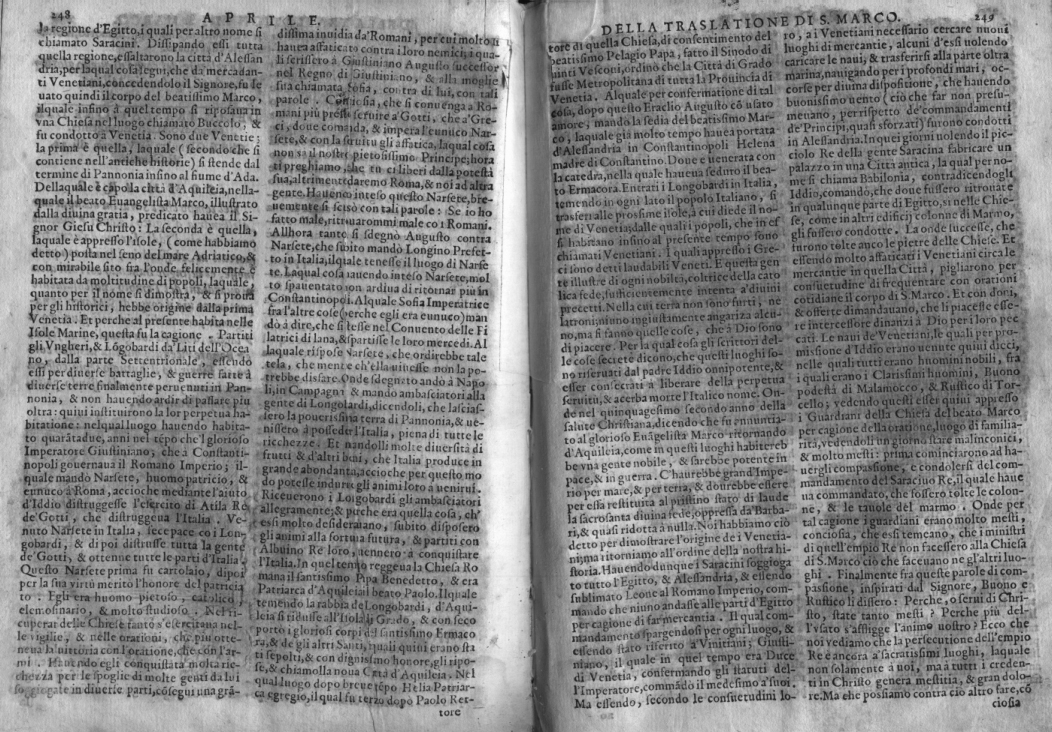 248
APRILE.
la regione d'Egitto, i quali per altro nome si
chiamato Saracini. Dissipando essi tutta
quella regione, essaltarono la città d'Alessan
dria, per laqual cosa seguì, che da mercadan-
ti Venetiani, concedendolo il Signore, fu le
uato quindi il corpo del beatissimo Marco,
ilquale infino à quel tempo si riposaua in
vna Chiesa nel luogo chiamato Buccolo, &
fu condotto a Venetia. Sono due Venetie:
la prima è quella, laquale (secondo che si
contiene nell'antiche historie) si stende dal
termine di Pannonia insino al fiume d'Ada.
Dellaquale è capo la città d'Aquileia, nella-
quale il beato Euangelista Marco, illustrato
dalla diuina gratia, predicato hauea il Si-
gnor Giesu Christo: La seconda è quella,
laquale è appresso l'isole, (come habbiamo
detto) posta nel seno del mare Adriatico, &
con mirabile sito fra l'onde, felicemente è
habitata da moltitudine di popoli, laquale,
quanto per il nome si dimostra, & si proua
per gli historici, hebbe origine dalla prima
Venetia. Et perche al presente habita nelle
Isole Marine, questa fu la cagione. Partiti
gli Vngheri, & Lōgobardi da' Liti dell'Ocea
no, dalla parte Settentrionale, essendo
essi per diuerse battaglie, & guerre fatte à
diuerse terre finalmente peruenuti in Pan-
nonia, & non hauendo ardir di passare piu
oltra: quiui instituirono la lor perpetua ha-
bitatione: nelqual luogo hauendo habita-
to quarātadue, anni nel tēpo che'l glorioso
Imperatore Giustiniano; che à Constanti-
nopoli gouernaua il Romano Imperio; il-
quale mando Narsete, huomo patricio, &
eunuco à Roma, accioche mediante l'aiuto
d'Iddio distruggesse l'essercito di Atila Re
de' Gotti, che distruggeua l'Italia. Ve-
nuto Narsete in Italia, fece pace co i Lon-
gobardi, & di poi distrusse tutta la gente
de' Gotti, & ottenne tutte le parti d'Italia.
Questo Narsete prima fu cartolaio, dipoi
per la sua virtù meritò l'honore del patricia
to. Egli era huomo pietoso, catolico,
elemosinario, & molto studioso. Nel ri-
cuperar delle Chiese tanto s'esercitaua nel-
le vigilie, & nelle orationi, che piu otte-
neua la uittoria con l'oratione, che con l'ar-
mi. Hauendo egli conquistata molta ric-
chezza per le spoglie di molte genti da lui
soggiogate in diuerse parti, cōseguì una grā-
dissima inuidia da' Romani, per cui molto si
hauea affaticato contra i loro nemici, i qua
li scrissero à Giustiniano Augusto successor
nel Regno di Giustiniano, & alla moglie
sua chiamata Sofia, contra di lui, con tai
parole. Conciosia, che si conuenga a Ro-
mani piu presto seruire a' Gotti, che a' Gre-
ci, doue comanda, & impera l'eunuco Nar-
sete, & con la seruitù gli affatica, laqual cosa
non sa il nostro pietosissimo Principe; hora
ti preghiamo, che tu ci liberi dalla potestà
sua, altrimente daremo Roma, & noi ad altra
gente. Hauendo inteso questo Narsete, bre-
uemente si scusò con tali parole: Se io ho
fatto male, ritrouarommi male co i Romani.
Allhora tanto si sdegno Augusto contra
Narsete, che subito mandò Longino Prefet-
to in Italia, ilquale tenesse il luogo di Narse
te. Laqual cosa hauendo inteso Narsete, mol
to spauentato non ardiua di ritornar piu in
Constantinopoli. Alquale Sofia Imperatrice
fra l'altre cose (perche egli era eunuco) man
dò à dire, che si stesse nel Conuento delle Fi
latrici di lana, & spartisse le loro mercedi. Al
laquale rispose Narsete, che ordirebbe tale
tela, che mentre ch'ella uiuesse non la po-
trebbe disfare. Onde sdegnato andò à Napo
li, in Campagna & mando ambasciatori alla
gente di Longobardi, dicendoli, che lascias-
sero la pouerissima terra di Pannonia, & ue-
nissero à posseder l'Italia, piena di tutte le
ricchezze. Et mandolli molte diuersità di
frutti & d'altri beni, che Italia produce in
grande abondanza, accioche per questo mo
do potesse indurre gli animi loro a uenirui.
Riceuerono i Longobardi gli ambasciatori
allegramente; & perche era quella cosa, ch'
essi molto desiderauano, subito disposero
gli animi alla fortuna futura, & partiti con
Albuino Re loro, uennero à conquistare
l'Italia. In quel tempo reggeua la Chiesa Ro
mana il santissimo Papa Benedetto, & era
Patriarca d'Aquileia il beato Paolo. Ilquale
temendo la rabbia de' Longobardi, d'Aqui-
leia si ridusse all'Isola di Grado, & con seco
portò i gloriosi corpi del santissimo Ermaco
ra, & de gli altri Santi, iquali quiui erano sta
ti sepolti, & con dignissimo honore, gli ripo-
se, & chiamolla noua Città d'Aquileia. Nel
qual luogo dopo breue tēpo Helia Patriar-
ca egregio, il qual fu terzo dopo Paolo Ret-
tore
DELLA TRASLATIONE DI S. MARCO.
249
tore di quella Chiesa, di consentimento del
beatissimo Pelagio Papa, fatto il Sinodo di
uinti Vescoui, ordinò che la Città di Grado
fusse Metropolitana di tutta la Prouincia di
Venetia. Alquale per confermatione di tal
cosa, dopo questo Eraclio Augusto cō usato
amore, mandò la sedia del beatissimo Mar-
co, laquale già molto tempo hauea portata
d'Alessandria in Constantinopoli Helena
madre di Constantino. Doue è uenerata con
la catedra, nella quale hauea seduto il bea-
to Ermacora. Entrati i Longobardi in Italia,
temendo in ogni lato il popolo Italiano, si
trasferì alle prossime isole, à cui diede il no-
me di Venetia, dalle quali i popoli, che in es
si habitano insino al presente tempo sono
chiamati Venetiani. I quali appresso i Gre-
ci sono detti laudabili Veneti. E questa gen
te illustre di ogni nobiltà, coltrice della cato
lica fede, sufficientemente intenta a' diuini
precetti. Nella cui terra non sono furti, ne
latroni, niuno ingiustamente angariza alcu-
no, ma si fanno quelle cose, che à Dio sono
di piacere. Per la qual cosa gli scrittori del-
le cose secrete dicono, che questi luoghi so-
no riseruati dal padre Iddio onnipotente, &
esser consecrati à liberare della perpetua
seruitù, & acerba morte l'Italico nome. On-
de nel quinquagesimo secondo anno della
salute Christiana, dicendo che fu annuntia-
to al glorioso Euāgelista Marco ritornando
d'Aquileia, come in questi luoghi habitereb
be vna gente nobile, & sarebbe potente in
pace, & in guerra. C'haurebbe grand'Impe-
rio per mare, & per terra, & dourebbe essere
per essa restituita al pristino stato di laude
la sacrosanta diuina fede, oppressa da' Barba-
ri, & quasi ridotta à nulla. Noi habbiamo ciò
detto per dimostrare l'origine de i Venetia-
ni; ma ritorniamo all'ordine della nostra hi-
storia. Hauendo dunque i Saracini soggioga
to tutto l'Egitto, & Alessandria, & essendo
sublimato Leone al Romano Imperio, com-
mando che niuno andasse alle parti d'Egitto
per cagione di far mercantia. Il qual com-
mandamento spargendosi per ogni luogo, &
essendo stato riferito à Vinitiani; Giusti-
niano, il quale in quel tempo era Duce
di Venetia, confermando gli statuti del-
l'Imperatore, commādò il medesimo a' suoi.
Ma essendo, secondo le consuetudini lo-
ro, a i Venetiani necessario cercare nuoui
luoghi di mercantie, alcuni d'essi uolendo
caricare le naui, & trasferirsi alla parte oltra
marina, nauigando per i profondi mari, oc-
corse per diuina dispositione, che hauendo
buonissimo uento (ciò che far non presu-
meuano, per rispetto de' commandamenti
de' Principi, quasi sforzati) furono condotti
in Alessandria. In quei giorni uolendo il pic-
ciolo Re della gente Saracina fabricare un
palazzo in una Città antica, la qual per no-
me si chiama Babilonia, contradicendogli
Iddio, comandò, che doue fussero ritrouate
in qualunque parte di Egitto, sì nelle Chie-
se, come in altri edificij colonne di Marmo,
gli fussero condotte. La onde successe, che
furono tolte anco le pietre delle Chiese. Et
essendo molto affaticati i Venetiani circa le
mercantie in quella Città, pigliarono per
consuetudine di frequentare con orationi
cotidiane il corpo di S. Marco. Et con doni,
& offerte dimandauano, che li piacesse esse-
re intercessore dinanzi à Dio per i loro pec
cati. Le naui de' Venetiani, le quali per pro-
missione d'Iddio erano uenute quini dieci,
nelle quali tutti erano huomini nobili, fra
i quali erano i Clarissimi huomini, Buono
podestà di Malamocco, & Rustico di Tor-
cello; vedendo questi esser quiui appresso
i Guardiani della Chiesa del beato Marco
per cagione della oratione, luogo di familia-
rità, vedendoli un giorno stare malinconici,
& molto mesti: prima cominciarono ad ha-
uergli compassione, e condolersi del com-
mandamento del Saracino Re, il quale haue
ua commandato, che fossero tolte le colon-
ne, & le tauole del marmo. Onde per
tal cagione i guardiani erano molto mesti,
conciosia, che essi temeano, che i ministri
di quell'empio Re non facessero alla Chiesa
di S. Marco ciò che faceuano ne gl'altri luo-
ghi. Finalmente fra queste parole di com-
passione, inspirati dal Signore, Buono e
Rustico li dissero: Perche, o serui di Chri-
sto, state tanto mesti? Perche più del-
l'vsato s'affligge l'animo nostro? Ecco che
noi vediamo che la persecutione dell'empio
Re è ancora a' sacratissimi luoghi, laquale
non solamente à noi, ma à tutti i creden-
ti in Christo genera mestitia, & gran dolo-
re. Ma che possiamo contra ciò altro fare, cō
ciosia